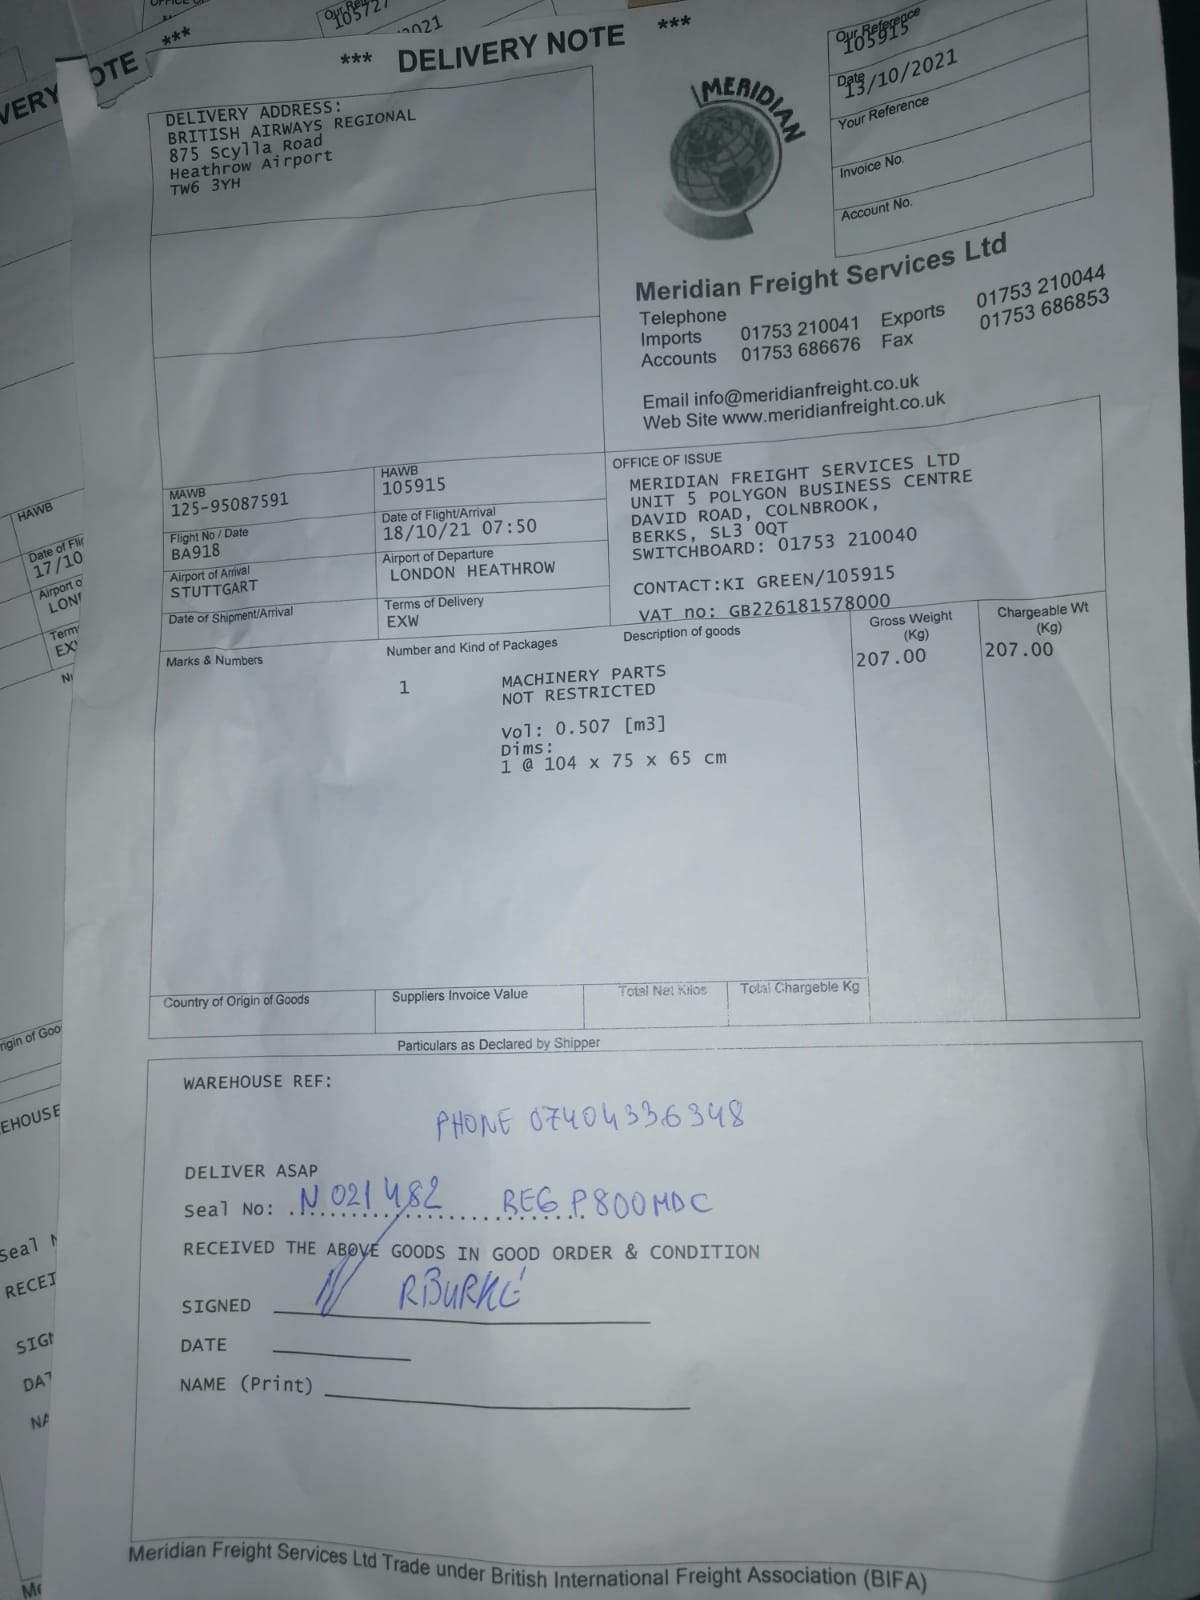 *** DELIVERY NOTE ***
Our Reference
105915
Date
13/10/2021
Your Reference
Invoice No.
Account No.
DELIVERY ADDRESS:
BRITISH AIRWAYS REGIONAL
875 Scylla Road
Heathrow Airport
TW6 3YH
MERIDIAN
Meridian Freight Services Ltd
Telephone
Imports 01753 210041 Exports 01753 210044
Accounts 01753 686676 Fax 01753 686853
Email info@meridianfreight.co.uk
Web Site www.meridianfreight.co.uk
MAWB
125-95087591
HAWB
105915
Flight No / Date
BA918
Date of Flight/Arrival
18/10/21 07:50
Airport of Arrival
STUTTGART
Airport of Departure
LONDON HEATHROW
Date of Shipment/Arrival
Terms of Delivery
EXW
OFFICE OF ISSUE
MERIDIAN FREIGHT SERVICES LTD
UNIT 5 POLYGON BUSINESS CENTRE
DAVID ROAD, COLNBROOK,
BERKS, SL3 0QT
SWITCHBOARD: 01753 210040
CONTACT:KI GREEN/105915
VAT no: GB226181578000
Marks & Numbers
Number and Kind of Packages
Description of goods
Gross Weight
(Kg)
Chargeable Wt
(Kg)
1 MACHINERY PARTS 207.00 207.00
NOT RESTRICTED
Vol: 0.507 [m3]
Dims:
1 @ 104 x 75 x 65 cm
Country of Origin of Goods
Suppliers Invoice Value
Total Net Kilos
Total Chargeble Kg
Particulars as Declared by Shipper
WAREHOUSE REF:
PHONE 07404336348
DELIVER ASAP
Seal No: N021482 REG P800MDC
RECEIVED THE ABOVE GOODS IN GOOD ORDER & CONDITION
SIGNED RBURKE
DATE
NAME (Print)
Meridian Freight Services Ltd Trade under British International Freight Association (BIFA)
OTE ***
VERY
105727
HAWB
17/10
EXW
EHOUSE